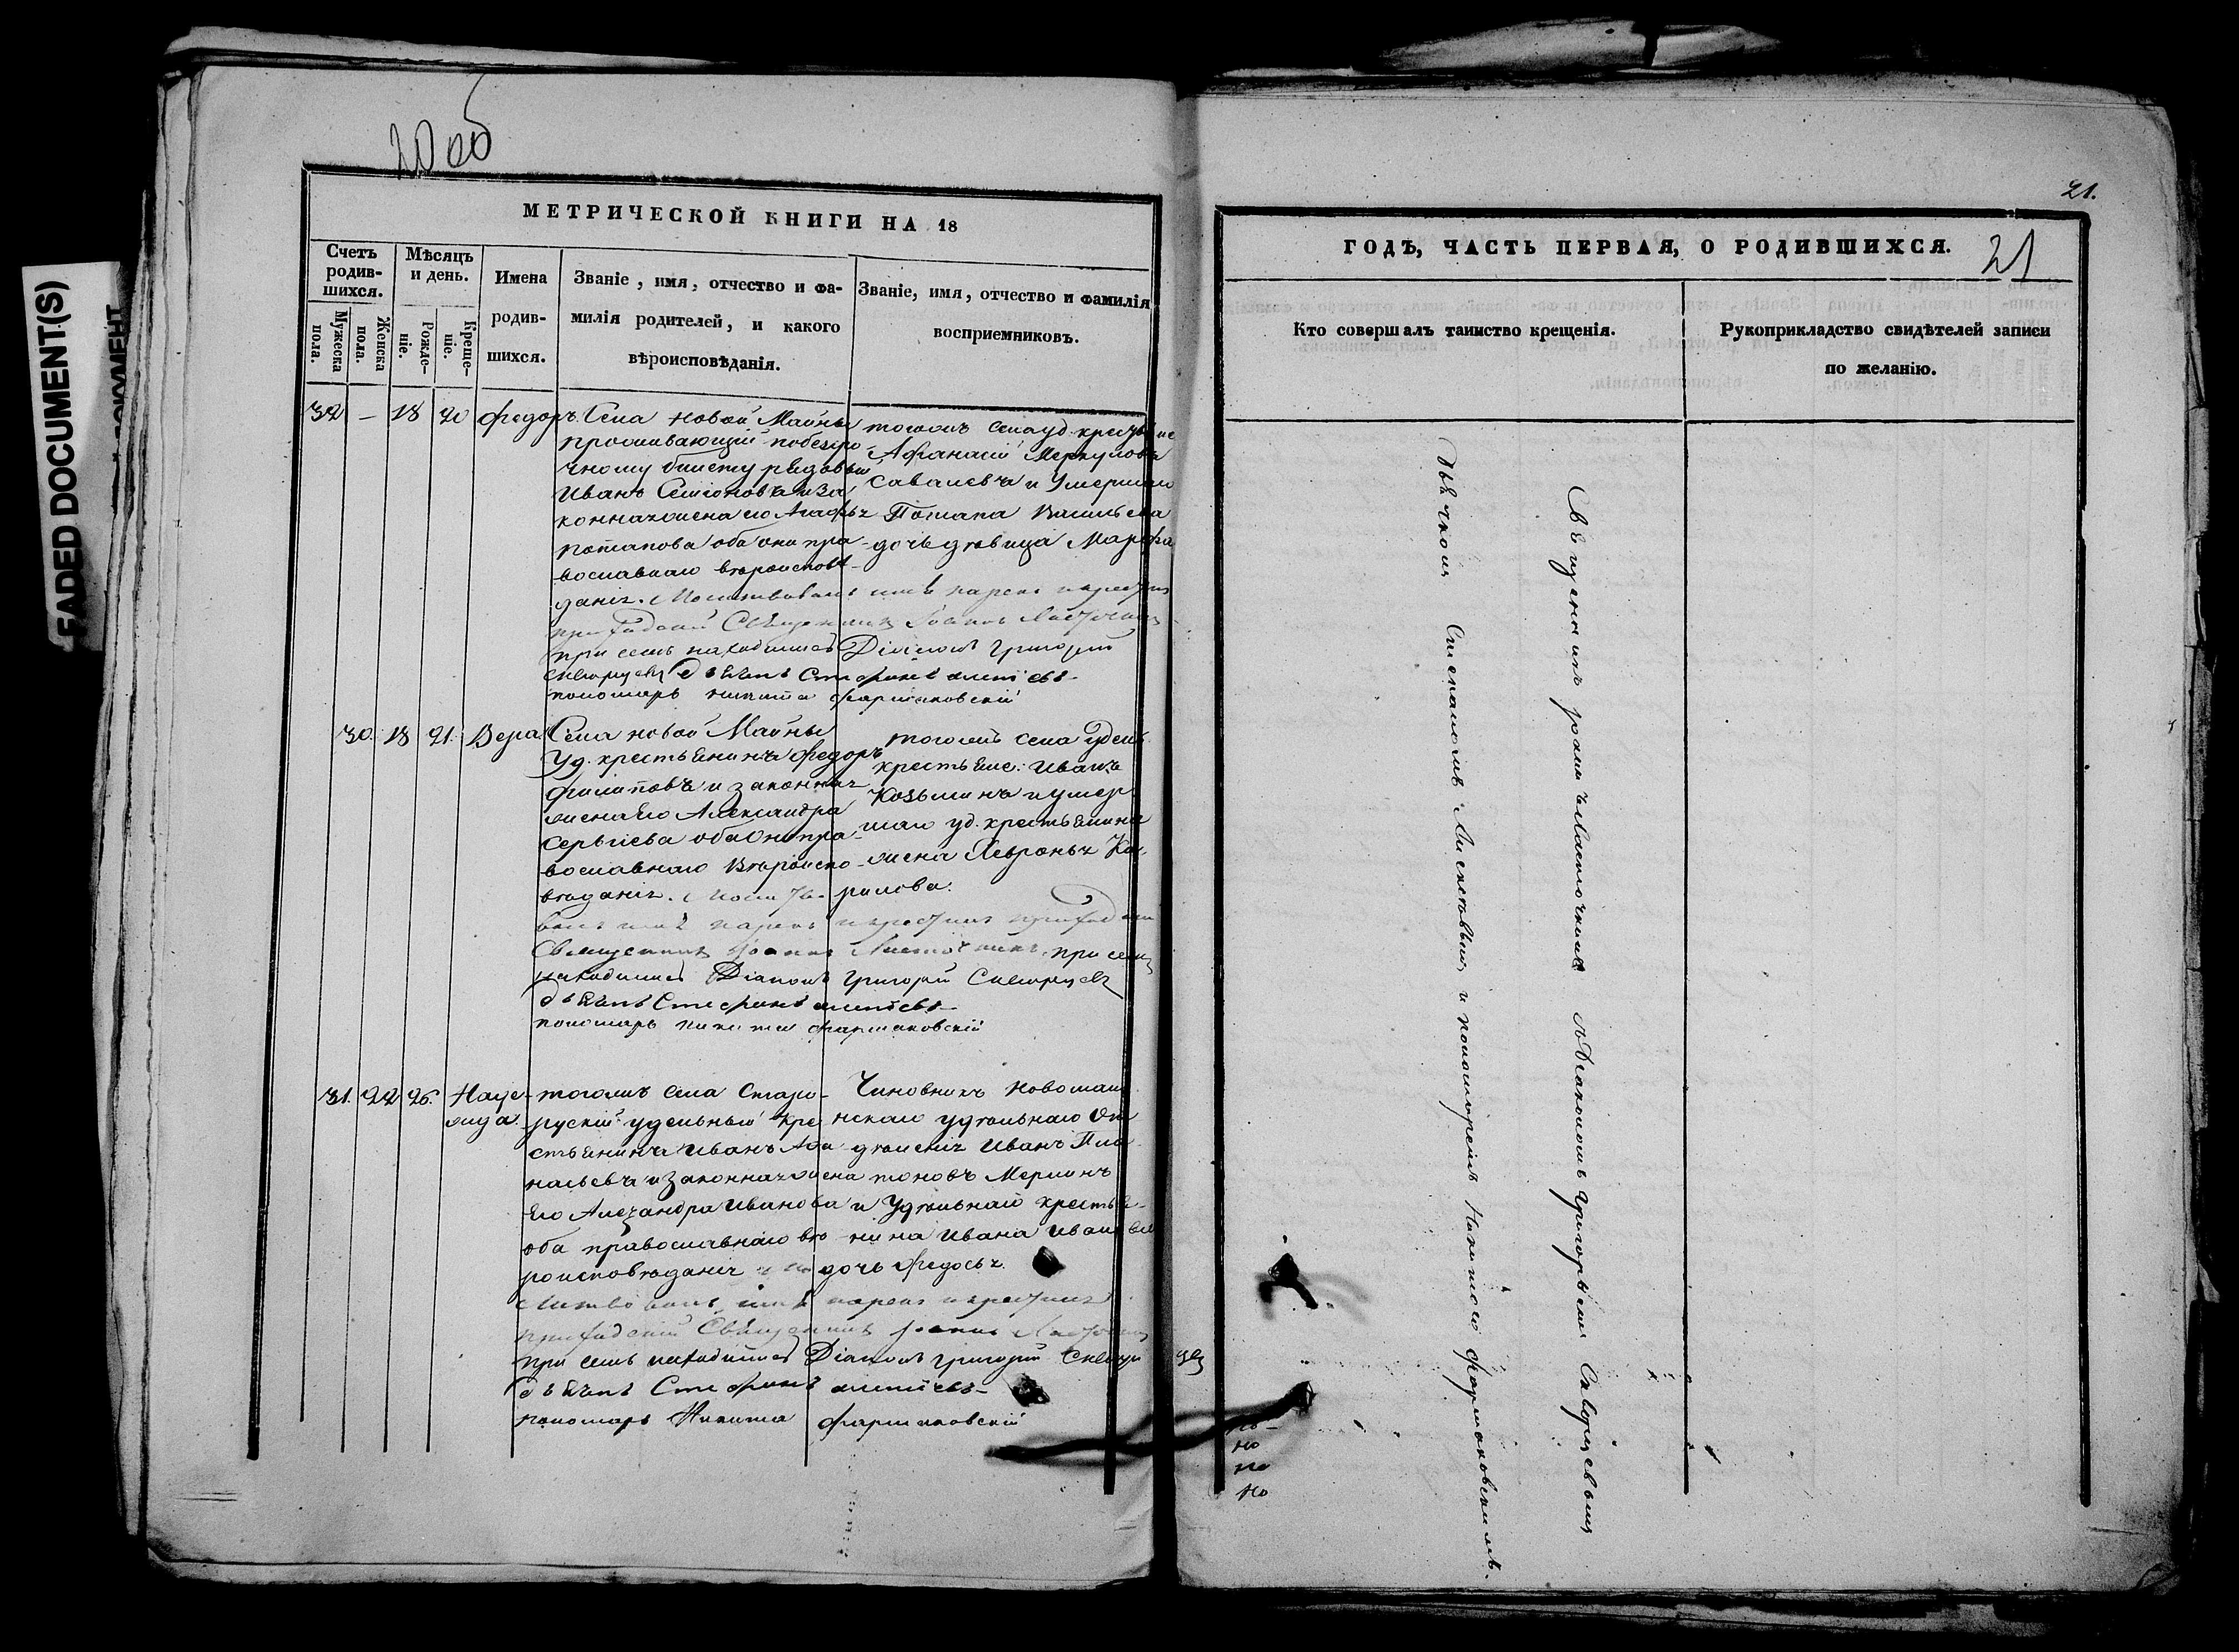 FADED DOCUMENT(S)
20 об
МЕТРИЧЕСКОЙ КНИГИ НА 18
Счетъ родив-шихся.
Мужеска пола.
Женска пола.
Мѣсяцъ и день.
Рожде-ніе.
Креще-ніе.
Имена родив-шихся.
Званіе, имя, отчество и фа-
милія родителей, и какого
вѣроисповѣданія.
Званіе, имя, отчество и фамилія
восприемниковъ.
32 – 18 20 Федоръ
Села Новой Майны
проживающий по безсро
чному билету рядовый
Иванъ Семіоновъ и за
конная жена его Агафья
Потапова оба они пра-
вославнаго вѣроисповѣ-
данія. Молитвовалъ имя нарекъ и крестилъ
приходскій Священникъ Іоаннъ Ласточкинъ
при семъ находились Діаконъ Григорій
Скворцевъ дьячекъ Стефанъ
пономарь Никита Фармаковскій
тогожъ села уд. крестьяне
Афанасій Меркуловъ
Савалевъ и умершаго
Потапа Васильева
дочь дѣвица Марфа
30. 18 21. Вера
Села Новой Майны
Уд. крестьянинъ Федоръ
Филиповъ и законная
жена его Александра
Сергиева оба они пра-
вославнаго вѣроиспо-
вѣданія. Молитво-
валъ имя нарекъ и крестилъ приходскій
Священникъ Іоаннъ Ласточкинъ, при семъ
находились Діаконъ Григорій Скворцевъ
дьячекъ Стефанъ
пономарь Никита Фармаковскій
тогожъ села удель.
крестьяне: Иванъ
Козьминъ и умер
шаго уд. крестьянина
жена Хевронья Ка-
рилова.
31. 22 26. Наде-
жда.
тогожъ села Стари-
рускій удельный кре
стьянинъ Иванъ Афа
насьевъ и законная жена
его Алезандра Иванова
оба православнаго вѣ
роисповѣданія
литвовалъ имя нарекъ и крестилъ
приходскій Священникъ Іоаннъ Ласточкинъ
при семъ находились Діаконъ Григорій Скворцевъ
дьячекъ Стефанъ
пономарь Никита Фармаковскій
Чиновникъ Новомаи
нскаго удѣльнаго От
дѣленія Иванъ Пла
тоновъ Мерлинъ
и Удѣльнаго крестья-
нина Ивана Иванова
дочь Федосья.
21.
21
ГОДЪ, ЧАСТЬ ПЕРВАЯ, О РОДИВШИХСЯ.
Кто совершалъ таинство крещенія.
Рукоприкладство свидѣтелей записи
по желанію.
Священникъ Іоаннъ Ласточкинъ съ Діакономъ Григорьемъ Скворцевымъ
Дьячкомъ Степаномъ и пономоремъ Никитою Фармаковскимъ.